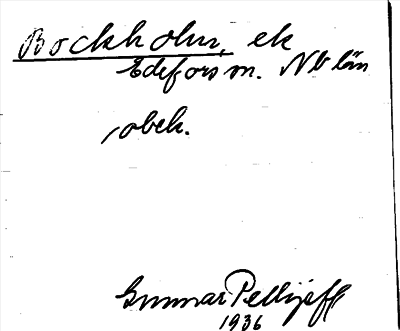 Bockholm, ek
Edefors sn. Nb län
, obek.
Gunnar Pellijeff
1936